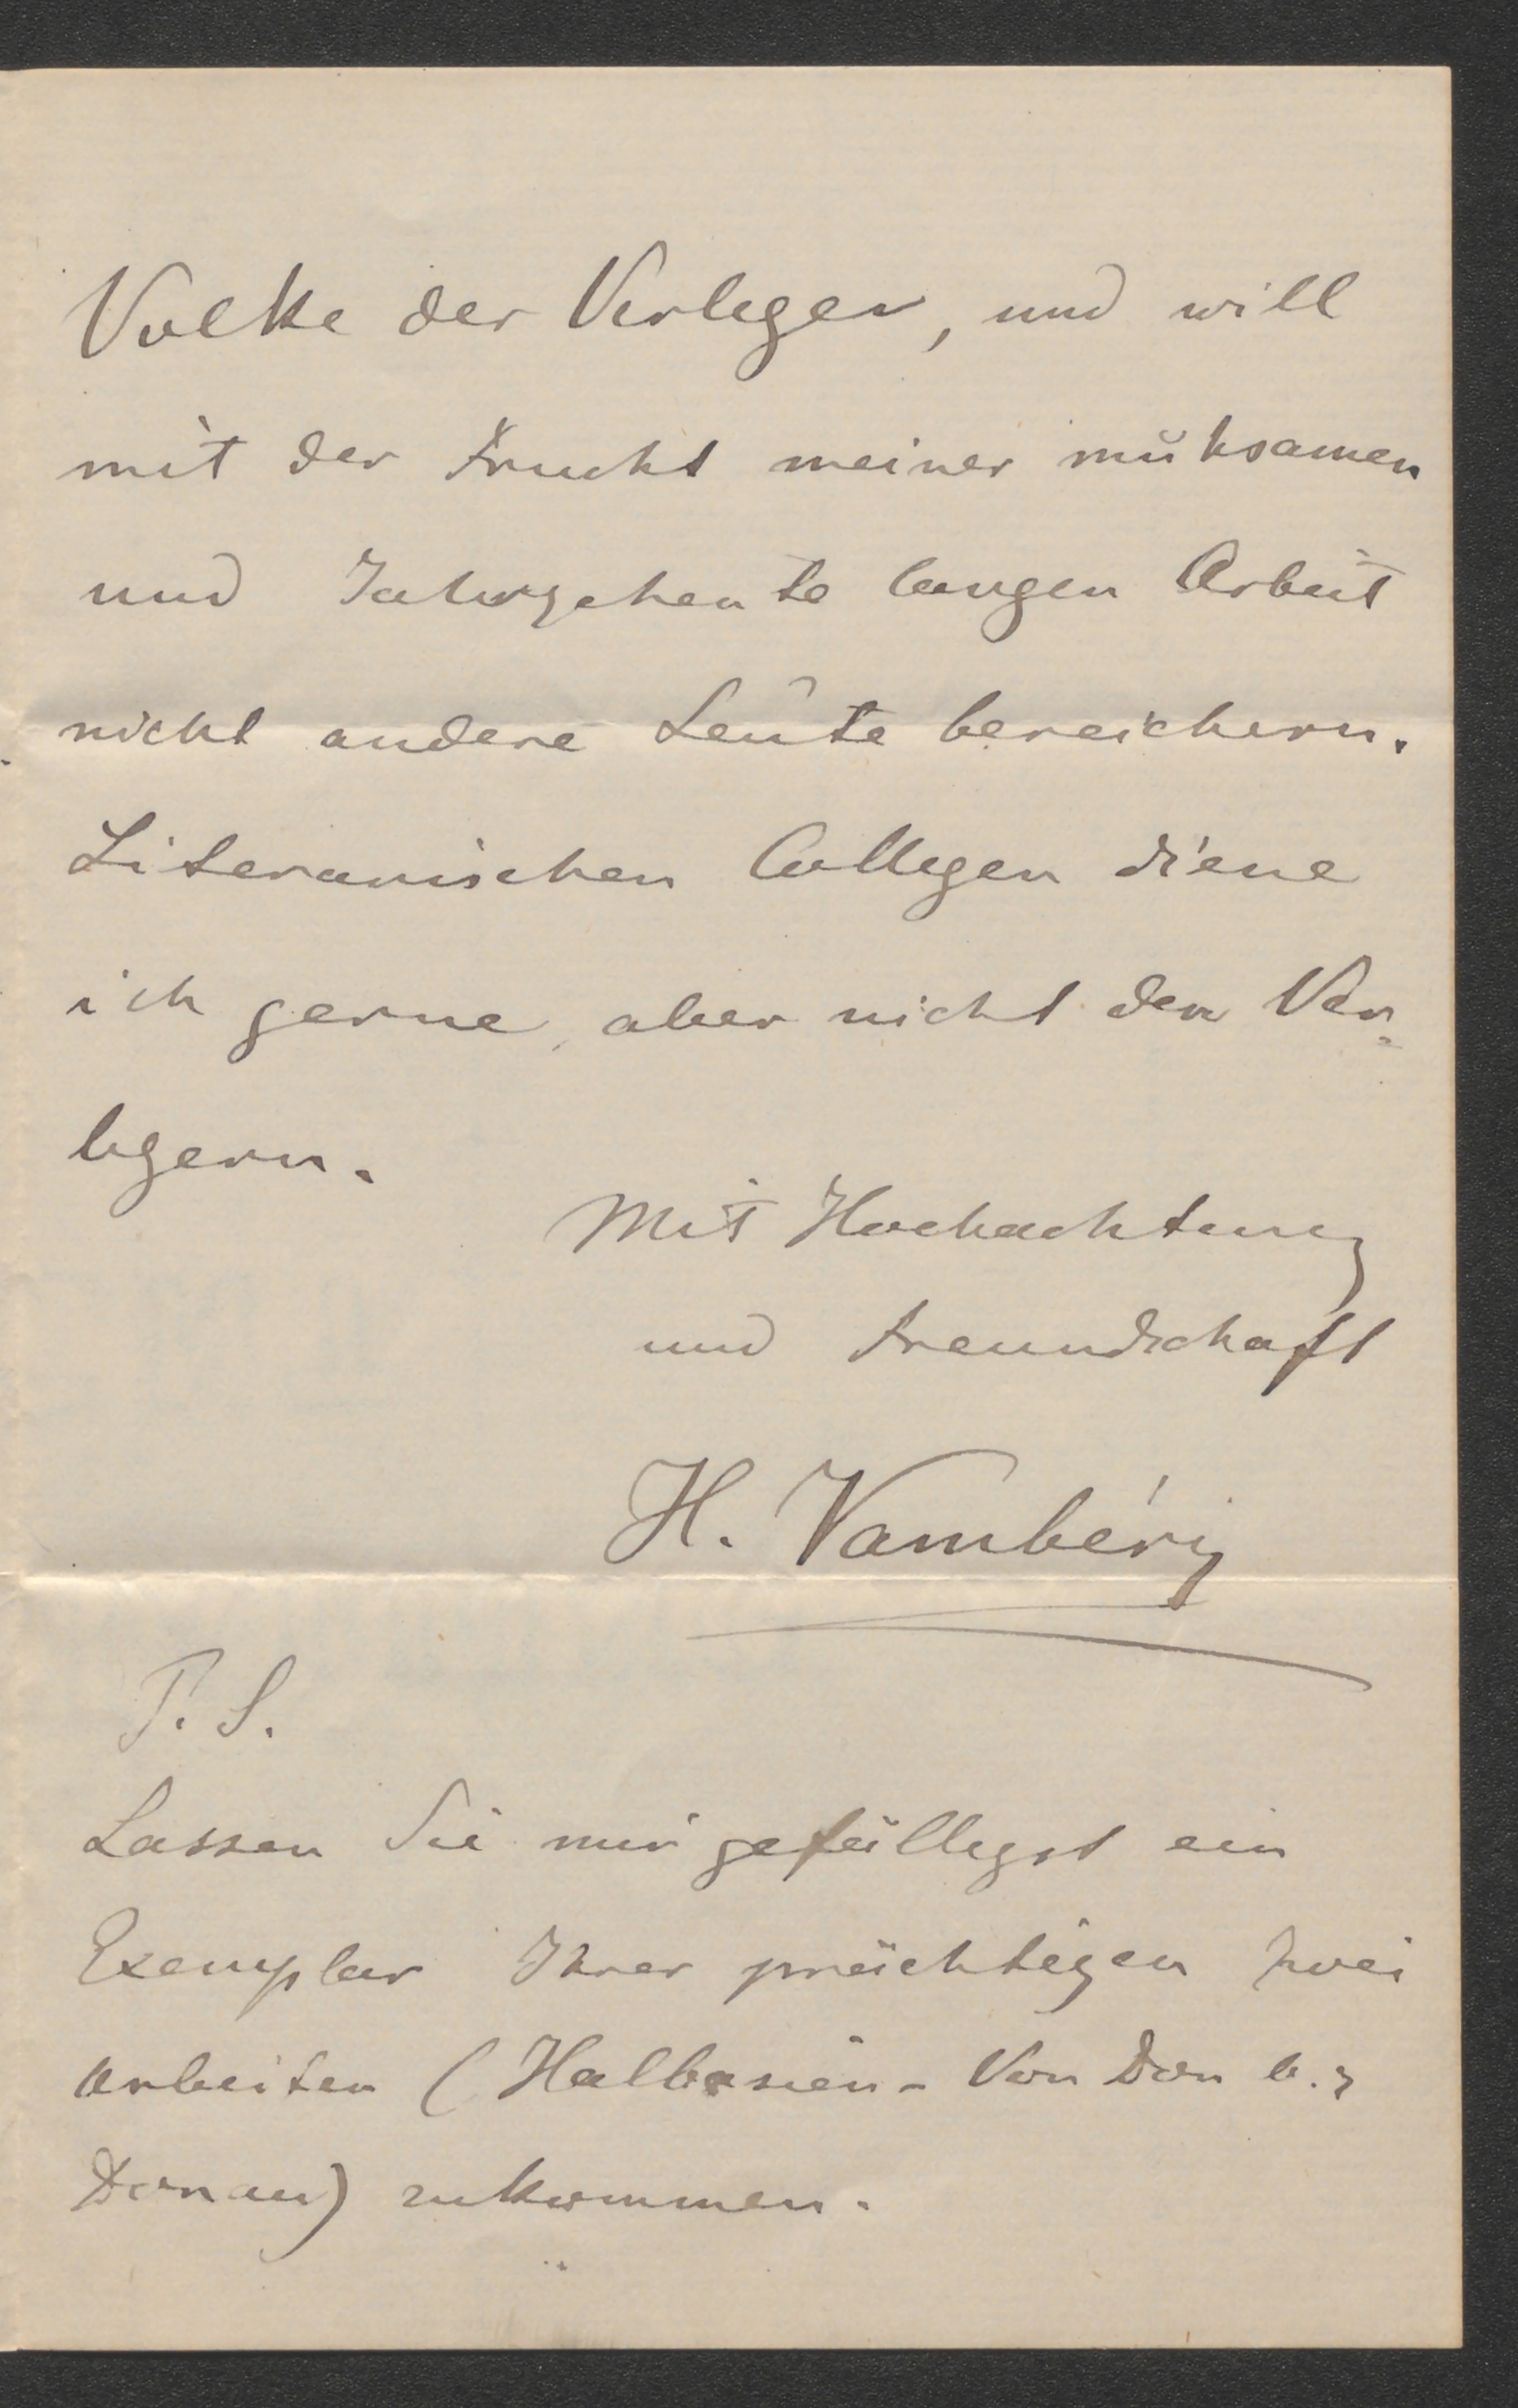 Volke der Verleger, und will
mit der Frucht meiner mühsamen
und Jahrzehente langen Arbeit
nicht andere Leute bereichern.
Literarischen Collegen diene
ich gerne, aber nicht den Ver-
legern.
Mit Hochachtung
und Freundschaft
H. Vambéry
P. S.
Lassen Sie mir gefälligst ein
Exemplar Ihrer prächtigen zwei
Arbeiten (Halbasien - Von Don b. z
Donau) zukommen.